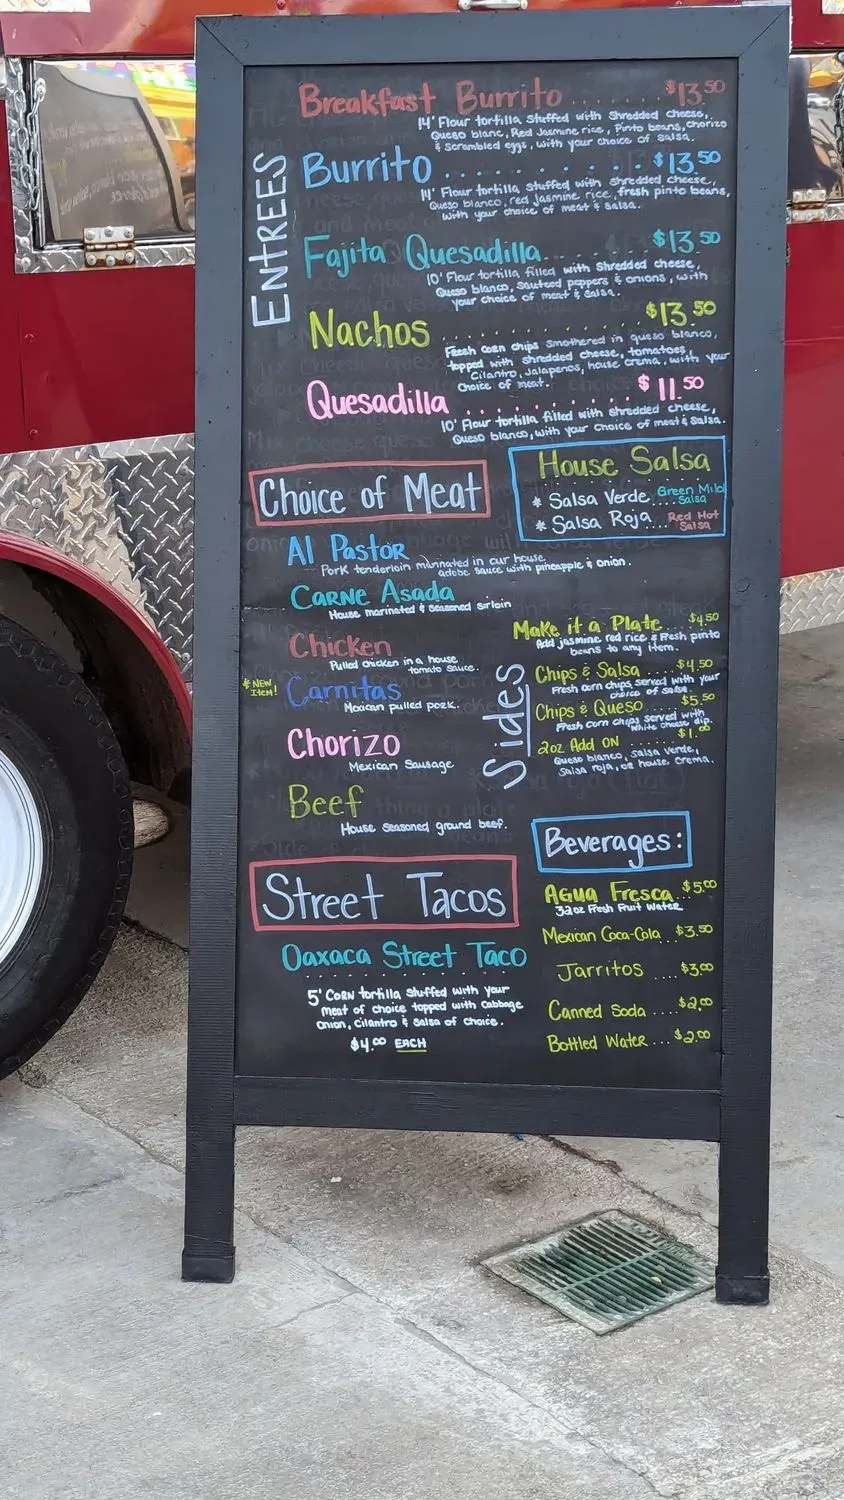 ENTREES
Breakfast Burrito ....... $13.50
14' Flour tortilla stuffed with shredded cheese,
Queso blanc, Red Jasmine rice, Pinto beans, chorizo
& scrambled eggs, with your choice of salsa.
Burrito .......... $13.50
14' Flour tortilla stuffed with shredded cheese,
Queso blanco, red jasmine rice, fresh pinto beans,
with your choice of meat & salsa.
Fajita Quesadilla ....... $13.50
10' Flour tortilla filled with shredded cheese,
Queso blanco, sauteed peppers & onions, with
your choice of meat & salsa.
Nachos .......... $13.50
Fresh corn chips smothered in queso blanco,
topped with shredded cheese, tomatoes,
Cilantro, Jalapenos, house crema, with your
choice of meat.
Quesadilla .......... $11.50
10' Flour tortilla filled with shredded cheese,
Queso blanco, with your choice of meat & salsa.
Choice of Meat
Al Pastor
Pork tenderloin marinated in our house
adobe sauce with pineapple & onion.
Carne Asada
House marinated & seasoned sirloin
Chicken
Pulled chicken in a house
tomato sauce.
* NEW ITEM!
Carnitas
Mexican pulled pork.
Chorizo
Mexican Sausage
Beef
House seasoned ground beef.
House Salsa
* Salsa Verde... Green Mild Salsa
* Salsa Roja... Red Hot Salsa
Sides
Make it a Plate .... $4.50
Add jasmine red rice & Fresh pinto
beans to any item.
Chips & Salsa .... $4.50
Fresh corn chips served with your
choice of salsa
Chips & Queso .... $5.50
Fresh corn chips served with
White cheese dip.
2oz Add ON ....... $1.00
Queso blanco, salsa verde,
Salsa roja, or house crema.
Street Tacos
Oaxaca Street Taco
5' Corn tortilla stuffed with your
meat of choice topped with cabbage
onion, cilantro & salsa of choice.
$4.00 EACH
Beverages:
Agua Fresca .. $5.00
32oz Fresh Fruit Water
Mexican Coca-Cola ... $3.50
Jarritos .... $3.00
Canned Soda .... $2.00
Bottled Water ... $2.00